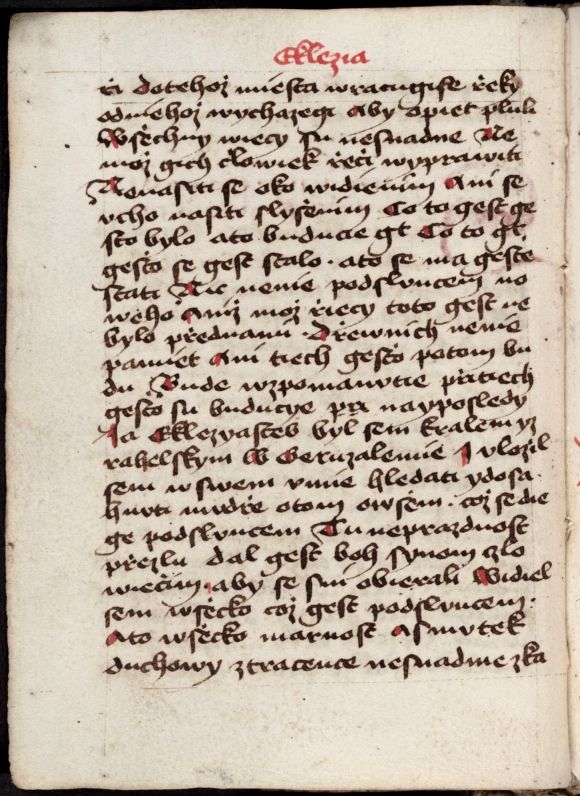 Eklezia
ti dotehoz miesta wracugise rzeky
odniehoz wychazegi aby opiet pluli
Wsechny wiecy su nesnadne Ne
moz gich clowiek rzeci wyprawiti
Nenasiti se oko widienim Ani se
vcho nasiti slysenim Co to gest ge
sto bylo ato buducie gt Co to gt
gesto se gest stalo · ato se ma geste
stati Nic nenie podsluncem no
weho Aniz moz rziecy toto gest ne
bylo przednami · Drzewnich nenie
pamiet Ani tiech gesto potom bu
du Bude wzpomanutie przitiech
gesto su buducye przi nayposledy
Ja Eklezyastes byl sem kralem yz
rahelskym W Geruzalemie I vlozil
sem w swem vmie hledati ydosa
hnuti mudrze otom owsem · coz sedie
ge podsluncem Tu neprazdnost
przezlu dal gest boh synom czlo
wiecim aby se snie obierali Widiel
sem wsecko coz gest podsluncem ·
Ato wsecko marnost Asmutek
duchowy ztracence nesnadnie zka